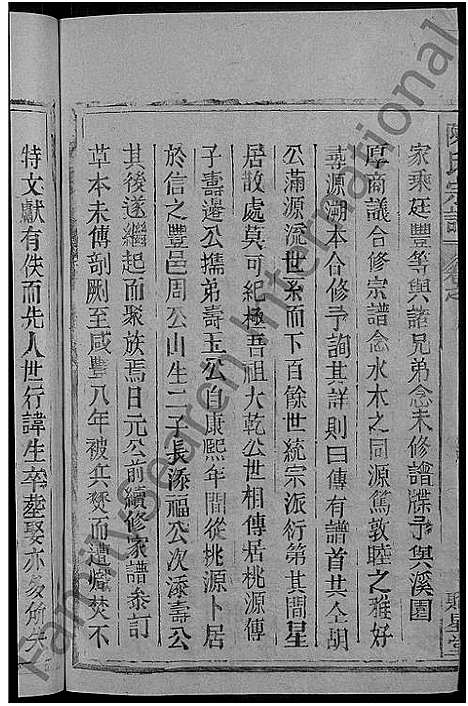 陳氏宗譜
家乘廷豐等與諸兄弟念未修譜牒予與溪園
厚商議合修宗譜念水木之同源篤敦睦之雅好
尋源溯本合修予詢其詳則曰傳有譜首其仝胡
公滿源流世系而下百餘世統宗派衍第其間星
居散處莫可紀極吾祖大乾公世相傳居桃源傳
子壽邊公攜弟壽玉公自康熙年間從桃源卜居
於信之豐邑周公山生二子長添福公次添壽公
其後遂繼起而聚族焉日元公前續修家譜叅訂
草本未傳剞劂至咸豐八年被兵燹而遺燼焚不
特文獻有佚而先人世行諱生卒塟娶亦多所失
聚星堂
FamilySearch International